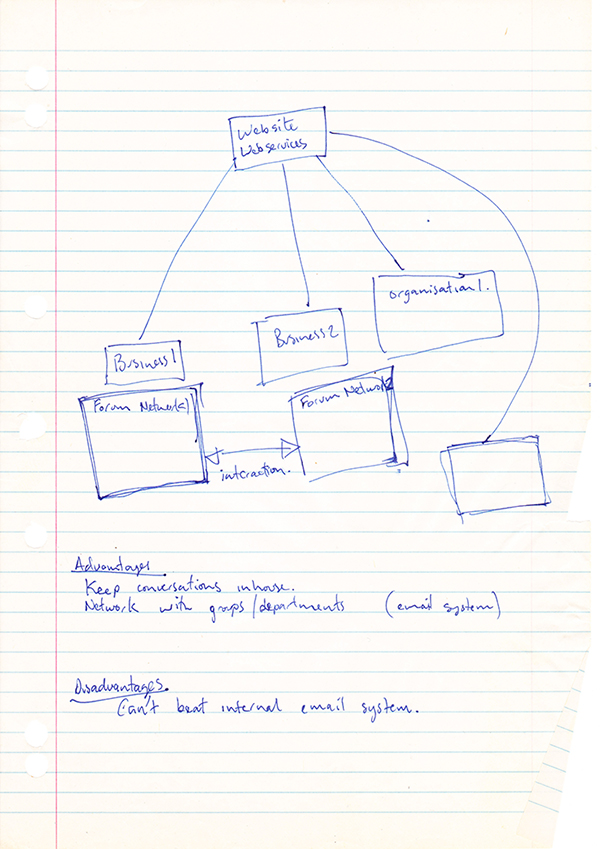 Website
Webservices
Organisation 1.
Business 2
Business 1
Forum Network 1
Forum Network 2
interaction.
Advantages
Keep conversations inhouse.
Network with groups/departments (email system)
Disadvantages.
Can't beat internal email system.